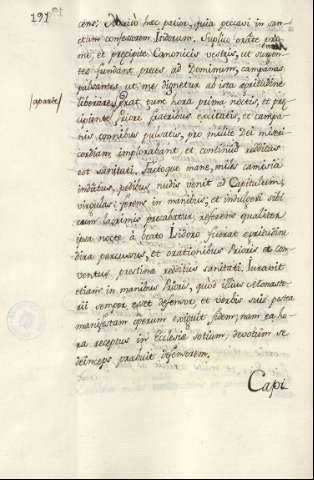 191
cens: Merito hæc patior, quia peccavi in sanctum
confessorem Isidorum. Suplico orate pro
me, et præcipite Canonicis vestris, ut surgentes
fundant preces ad Dominum, campanas
pulsantes ut me dignetur ab ista egritudine
/aparte/
liberare. Erat tunc hora prima noctis, et
Priore fratribus excitatis, et campanis
omnibus pulsatis, pro milite Dei misericordiam
implorabant et continuò redditus
est sanitati. Factoque mane, miles camisia
indutus, pedibus nudis venit ad Capitulum,
virgulas ferens in manibus, et indulgeri sibi
cum lacrimis precabatur referens qualiter
ipsa nocte à beato Isidoro fuerat
dira percussus, et orationibus Prioris et conventus
pristinæ redditus sanitati. Iuravit
etiam in manibus Priori, quod illius Monasterii
semper esset defensor et verbis suis postea
manifestam operum exiguit fidem; nam ea hora
receptus in Ecclesiæ sotium, devotium se
deinceps præbuit defensorem.
Capi